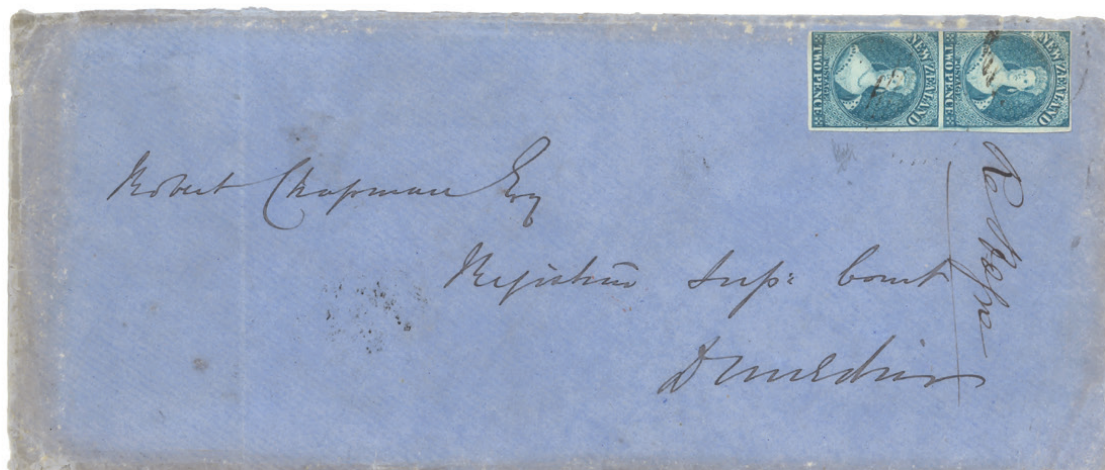 NEW ZEALAND
TWO PENCE
NEW ZEALAND
TWO PENCE
Robert Chapman Esq
Registrar Supr: Court
Dunedin